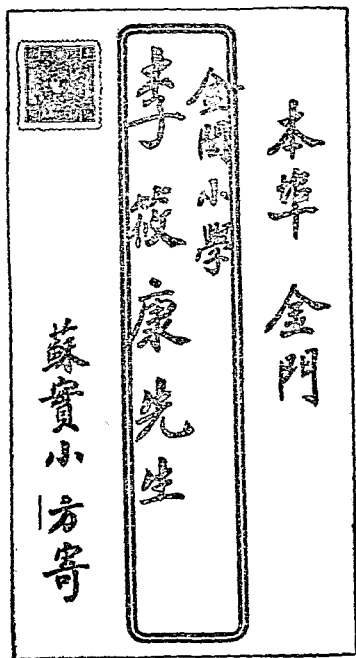 本埠 金門
金閶小學
李筱康先生
蘇實小方寄